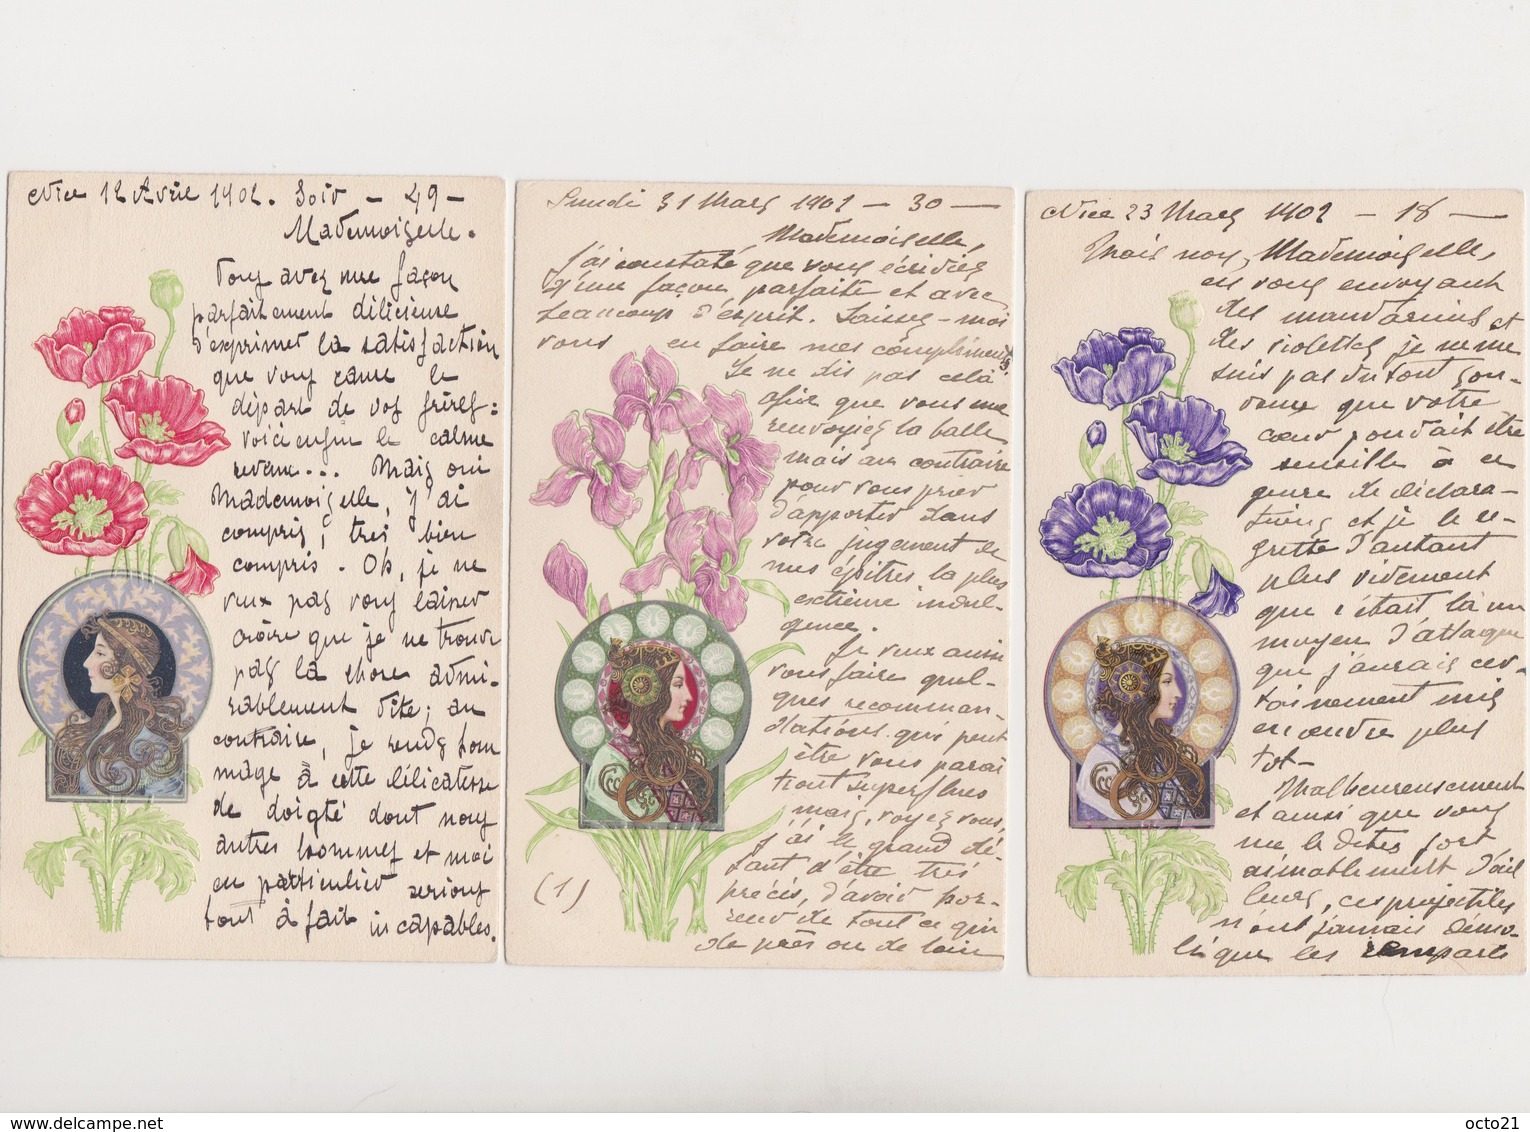 Nice 12 Avril 1902. Soir - 49 -
Mademoiselle.
Vous avez une façon
parfaitement délicieuse
d'exprimer la satisfaction
que vous cause le
départ de vos frères:
voici enfin le calme
revenu... Mais oui
Mademoiselle, j'ai
compris, très bien
compris. Oh, je ne
veux pas vous laisser
croire que je ne trouve
pas la chose admi-
rablement dite; au
contraire, je rends hom
mage à cette délicatesse
de doigté dont nous
autres hommes et moi
en particulier serions
tout à fait incapables.
Lundi 31 Mars 1902 - 30 -
Mademoiselle,
J'ai constaté que vous écriviez
d'une façon parfaite et avec
beaucoup d'esprit. Laissez-moi
vous en faire mes compliments
Je ne dis pas cela
afin que vous me
renvoyiez la balle
mais au contraire
pour vous prier
d'apporter dans
votre jugement de
mes épîtres la plus
extrême indul-
gence.
Je veux aussi
vous faire quel-
ques recomman-
dations qui peut
être vous parai
tront superflues
mais, voyez vous,
j'ai le grand dé-
faut d'être très
précis, d'avoir hor-
reur de tout ce qui
de près ou de loin
(1)
Nice 23 Mars 1902 - 18 -
Mais non, Mademoiselle,
en vous envoyant
des mandarines et
des violettes je ne me
suis pas du tout sou-
venu que votre
cœur pouvait être
sensible à ce
genre de déclara-
tions et je le re-
grette d'autant
plus vivement
que c'était là un
moyen d'attaque
que j'aurais cer-
tainement mis
en œuvre plus
tôt-
Malheureusement
et ainsi que vous
me le dites fort
aimablement d'ail
leurs, ces projectiles
n'ont jamais démo-
li que les remparts
octo21